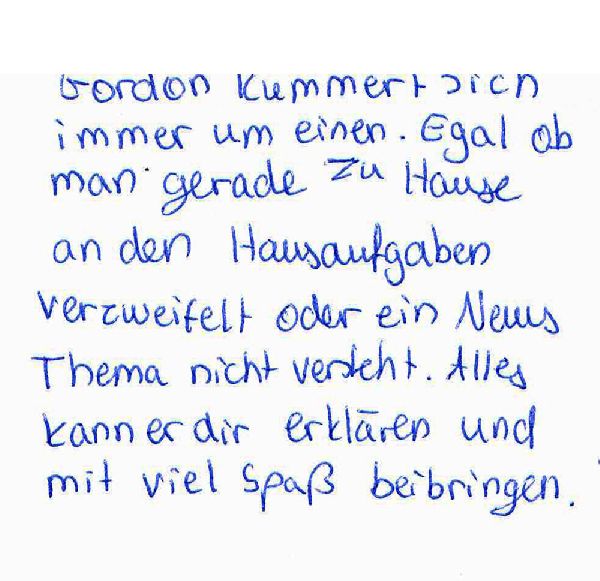 Gordon kümmert sich
immer um einen. Egal ob
man gerade zu Hause
an den Hausaufgaben
verzweifelt oder ein Neues
Thema nicht versteht. Alles
kann er dir erklären und
mit viel Spaß beibringen.